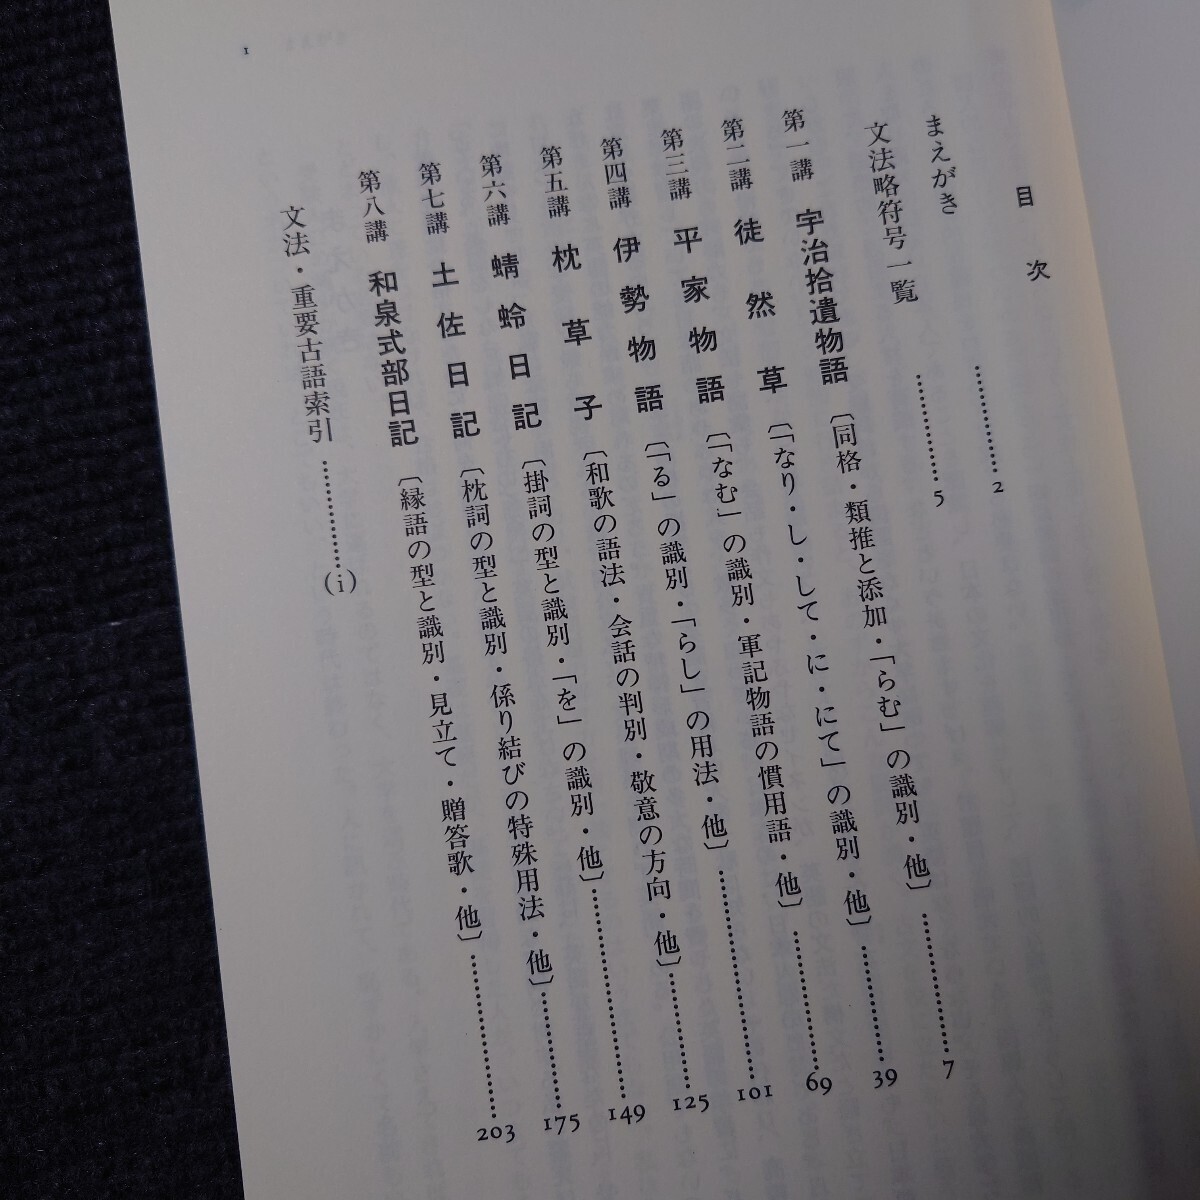 目次
まえがき……………2
文法略符号一覧……………5
第一講 宇治拾遺物語〔同格・類推と添加・「らむ」の識別・他〕……………7
第二講 徒然草〔「なり・し・して・に・にて」の識別・他〕……………39
第三講 平家物語〔「なむ」の識別・軍記物語の慣用語・他〕……………69
第四講 伊勢物語〔「る」の識別・「らし」の用法・他〕……………101
第五講 枕草子〔和歌の語法・会話の判別・敬意の方向・他〕……………125
第六講 蜻蛉日記〔掛詞の型と識別・「を」の識別・他〕……………149
第七講 土佐日記〔枕詞の型と識別・係り結びの特殊用法・他〕……………175
第八講 和泉式部日記〔縁語の型と識別・見立て・贈答歌・他〕……………203
文法・重要古語索引……………(i)
1